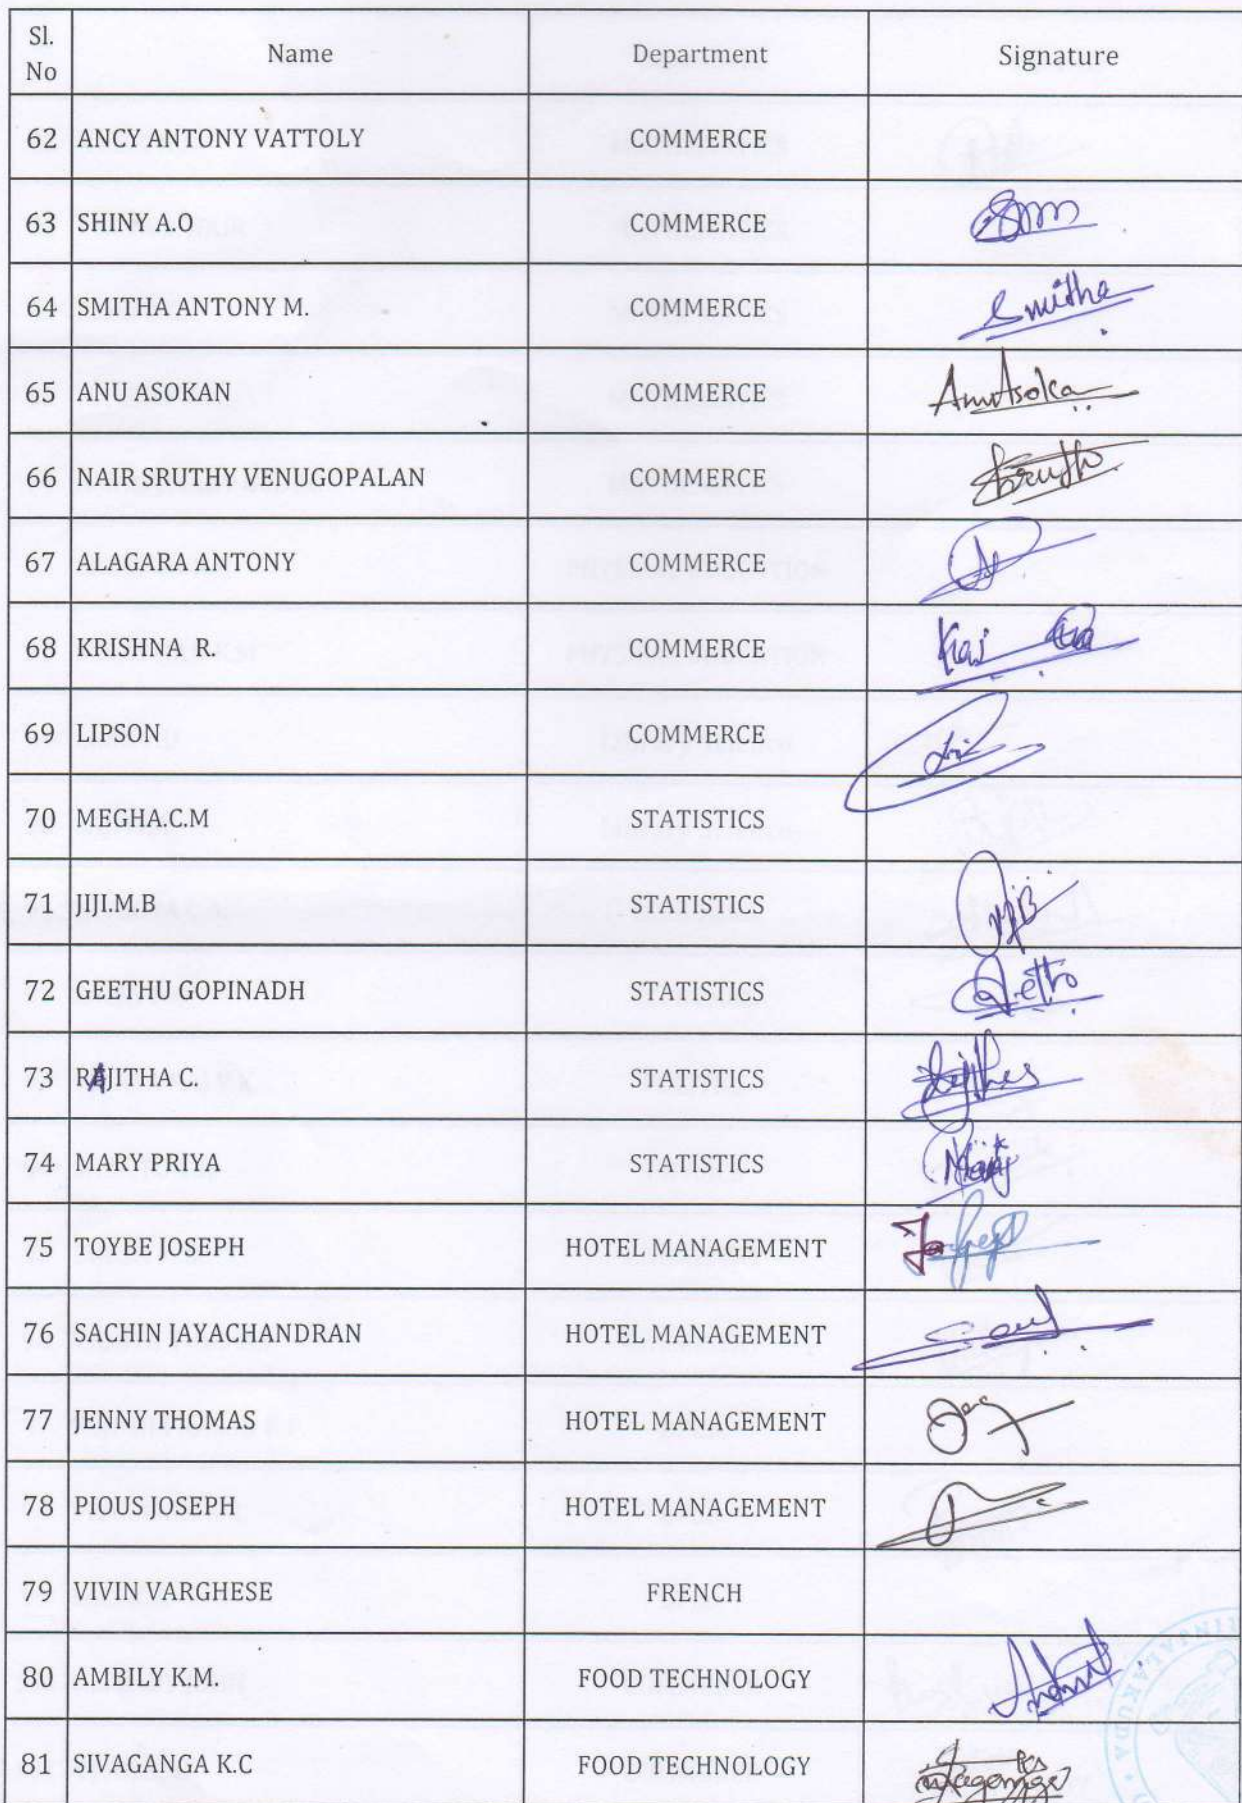 Sl. No Name Department Signature
62 ANCY ANTONY VATTOLY COMMERCE
63 SHINY A.O COMMERCE
64 SMITHA ANTONY M. COMMERCE Smitha
65 ANU ASOKAN COMMERCE AnuAsokan
66 NAIR SRUTHY VENUGOPALAN COMMERCE
67 ALAGARA ANTONY COMMERCE
68 KRISHNA R. COMMERCE
69 LIPSON COMMERCE
70 MEGHA.C.M STATISTICS
71 JIJI.M.B STATISTICS
72 GEETHU GOPINADH STATISTICS
73 RAJITHA C. STATISTICS
74 MARY PRIYA STATISTICS
75 TOYBE JOSEPH HOTEL MANAGEMENT
76 SACHIN JAYACHANDRAN HOTEL MANAGEMENT
77 JENNY THOMAS HOTEL MANAGEMENT
78 PIOUS JOSEPH HOTEL MANAGEMENT
79 VIVIN VARGHESE FRENCH
80 AMBILY K.M. FOOD TECHNOLOGY
81 SIVAGANGA K.C FOOD TECHNOLOGY